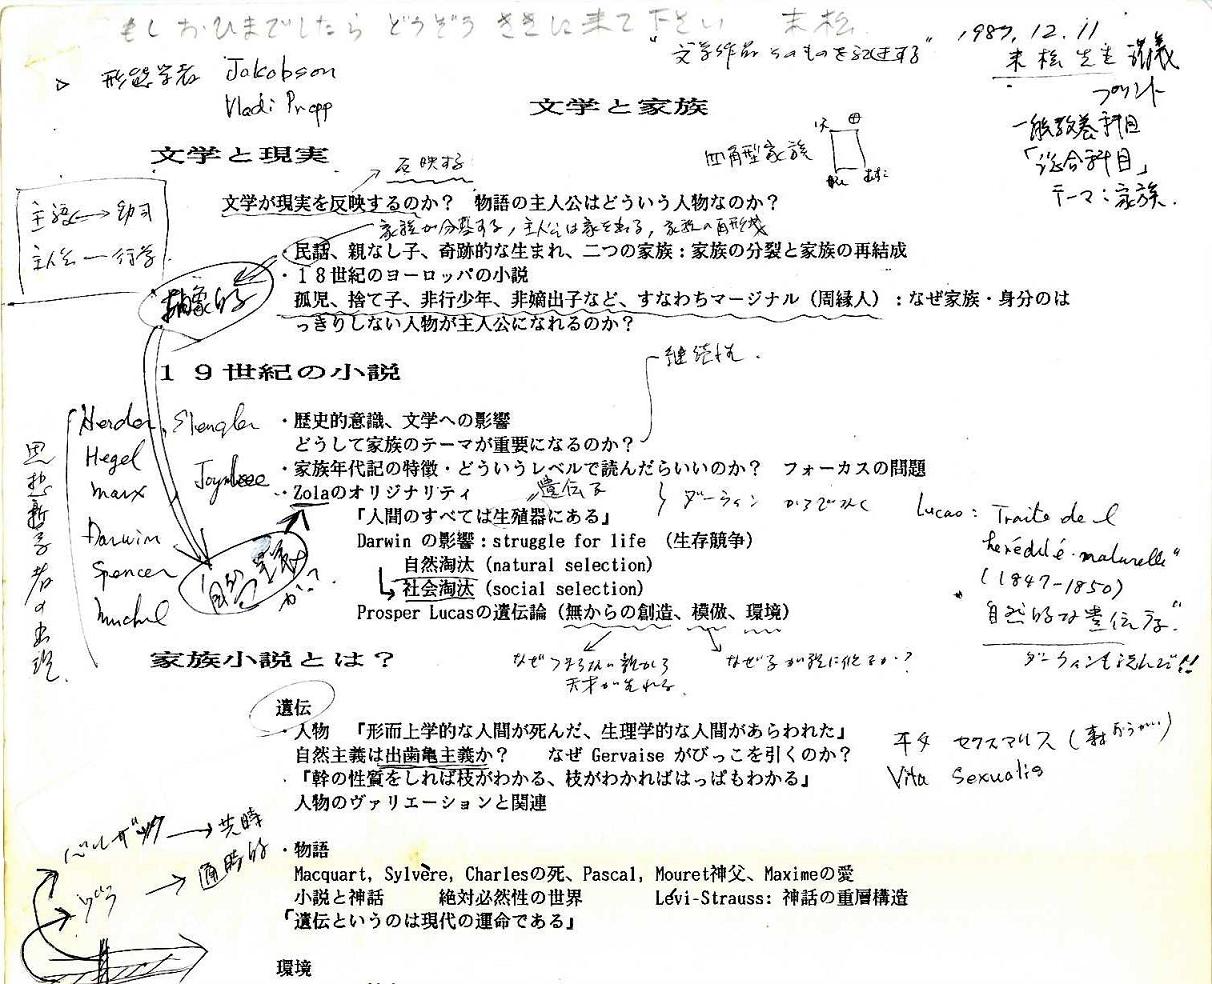 もしおひまでしたら どうぞうききに来て下さい 末松
"文学作品そのものを記述する"
1987.12.11
末松先生 講義
プリント
一般教養科目
「総合科目」
テーマ：家族
形態学者 Jakobson
Vladi Propp
文学と家族
四角型家族
父 母
文学と現実
反映する
主語 ←→ 動詞
主人公 — 行為
文学が現実を反映するのか？ 物語の主人公はどういう人物なのか？
家族が分裂する，主人公は家を出る，家族の再形成
・民話、親なし子、奇跡的な生まれ、二つの家族：家族の分裂と家族の再結成
・１８世紀のヨーロッパの小説
抽象的
孤児、捨て子、非行少年、非嫡出子など、すなわちマージナル（周縁人）：なぜ家族・身分のは
っきりしない人物が主人公になれるのか？
継続性．
１９世紀の小説
Herder
・歴史的意識、文学への影響
どうして家族のテーマが重要になるのか？
Hegel
・家族年代記の特徴・どういうレベルで読んだらいいのか？ フォーカスの問題
Marx
・Zolaのオリジナリティ
遺伝子
ダーウィン
Lucas： Traité de l
hérédité naturelle"
(1847-1850)
"自然的な遺伝学"
ダーウィンも読んだ!!
「人間のすべては生殖器にある」
Darwin
Darwin の影響：struggle for life （生存競争）
自然淘汰 (natural selection)
Spencer
社会淘汰 (social selection)
Prosper Lucasの遺伝論（無からの創造、模倣、環境）
天才が生れる．
なぜ子が親に似るか？
家族小説とは？
遺伝
・人物 『形而上学的な人間が死んだ、生理学的な人間があらわれた』
自然主義は出歯亀主義か？ なぜ Gervaise がびっこを引くのか？
セクスマリス
Vita Sexualis
・『幹の性質をしれば枝がわかる、枝がわかればはっぱもわかる』
人物のヴァリエーションと関連
バルザック → 共時
ゾラ → 通時的
・物語
Macquart, Sylvère, Charlesの死、Pascal, Mouret神父、Maximeの愛
小説と神話 絶対必然性の世界 Lévi-Strauss: 神話の重層構造
「遺伝というのは現代の運命である」
環境